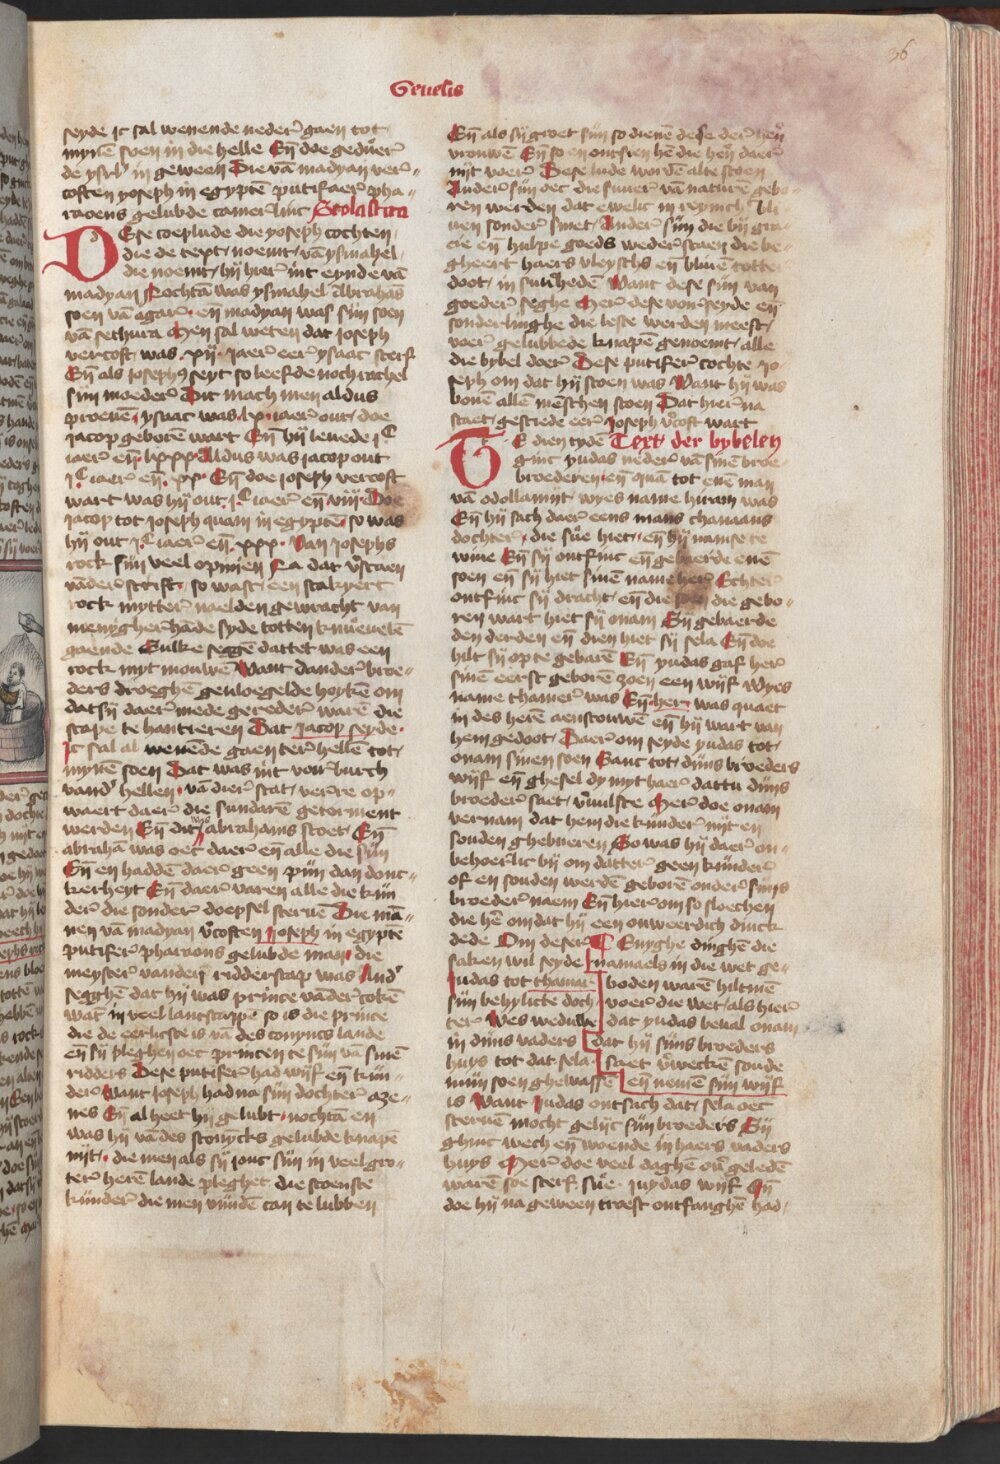 36
Genesis
seyde ic sal wenende neder gaen tot
mynē soen in die helle Eñ doe geduer
de ysrl' in geween Die vā madyan ver
coften yoseph in egyptē putifaer pha
raoens gelubde camerlinc Scolastica
Dese coeplude die yoseph cochten
die de text noemt vā ysmahel
die noemt hij hier int eynde vā
madyan Nochtā was ysmahel Abrahās
soen vā agar eñ madyan was sijn soen
vā sethura Men sal weten dat ioseph
vercoft was xij iaer eer ysaac sterf
Eñ als iosephus seyt so leefde noch rachel
sijn moeder Dit mach men aldus
proeuē ysaac was lx iaer out doe
jacop geborē wart Eñ hij leuede jC
iaer eñ lxxx Aldus was jacop out
jC iaer eñ xx Eñ doe joseph vercoft
wart was hij out jC iaer eñ viij Doe
jacop tot joseph quam in egyptē so was
hij out jC iaer eñ xxx Van josephs
rock sijn veel opinien Na dat verstaen
vāder scrift so wast een stalkyert
rock mytter naelden gewracht van
menygherhāde syde totten knueuelē
gaende Sulke seggē dattet was een
rock myt mouwē Want dander broe
ders droeghē geuloegelde hoykē om
dat sij daer mede gereder warē die
scape te hantieren Dat jacop seyde
Ic sal al wenēde gaen ter hellē tot
mynē soen Dat was int vorburch
vand' hellen vā dier stat verre op
waert daer die sundarē getorment
werden Eñ dit was abrahams scoet Eñ
abrahā was oec daer eñ alle die sijn
Eñ en haddē daer geen pijn dan donc
kerheyt Eñ daer varen alle die kijn
der die sonder doepsel steruē Die mā
nen vā madyan vercoften joseph in egyptē
putifer pharaons gelubde man die
meyster vanden ridderscap was And'
segghē dat hij was prince vāder cokē
wāt in veel lantscappē so is die prince
die de eerlicste is vā des conyncs lande
eñ sij pleghen oec princen te sijn vā sinē
ridders Dese putifer had wijf eñ kijn
der Want joseph had na sijn dochter aze
nes Eñ al heet hij gelubt nochtā en
was hij vā des conyncks gelubde knapē
nijt die men als sij jonc sijn in veel gro
ter herē lande pleghet die scoenste
kijnder die men vijndē can te lubben
Eñ als sij groet sijn so dienē dese der heñ
vrouwē Eñ so en ontsien hē die heñ daer
nijt voer Dese lude wordē alte scoen
Ander sijn oec die suuer vā naturē gebo
ren werden dat ewelic in reynich bli
uen sonder smet Ander sijn die bij gra
cie eñ hulpe goeds weder staen die be
gheert haers vleyschs eñ bliuē totter
doot in suuerhedē Want dese sijn van
goeder seghe Mer dese vorseyde eñ
sonderlinghe die leste werden meest
voer gelubbede knapē genoemt alle
die bybel doer Dese putifer cochte jo
seph om dat hij scoen was Want hij was
bouē allē mēschen scoen Dat hier na
staet gesciede eer joseph vercoft wart
Te dien tydē Text der bybelen
ginc yudas neder vā sinē broe
broederen eñ quā tot enē man
vā odollamijt wyes name hiram was
Eñ hij sach daer eens mans chanaans
dochter die sue hiet eñ hij namse te
wiue Eñ sij ontfinc eñ gebaerde enē
soen eñ sij hiet sinē name her Echter
ontfinc sij dracht eñ die soen die gebo
ren wart hiet sij onam Eñ gebaerde
den derden eñ dien hiet sij sela Eñ doe
hilt sij op te gebarē Eñ yudas gaf her
sinē eerst geborē zoen een wijf wyes
name thamer was Eñ her was quaet
in des herē aenscouwē eñ hij wart van
hem gedoot Daer om seyde yudas tot
onam sinen soen Ganc tot dijns broeders
wijf eñ ghesel dy myt haer dattu dijns
broeder saet verwilste Mer doe onam
vernam dat hem die kijnder nijt en
souden ghebueren So was hij daer on
behoerlic bij om datter geen kijnder
of en souden werdē geborē onder sijns
broeder naem Eñ hier om so sloechen
die hē om dat hij een onweerdich dinck
dede Om deser
saken wil seyde
Judas tot thamar
sijn behylicte doch
ter Wes weduwe
in dijns vaders
huys tot dat sela
mijn soen ghewassē
Enyghe dinghē die
namaels in die wet ge
boden warē hiltmē
voer die wet als hier
dat yudas beual onam
dat hij sijns broeders
saet verweckē soude
eñ nemē sijn wijf
is Want Judas ontsach dat sela oec
steruē mocht gelijc sijn broeders Sij
ghinc wech eñ woende in haers vaders
huys Mer doe veel daghē ouer geledē
warē soe sterf sue juydas wijf Eñ
doe hij na geween troest ontfanghē had